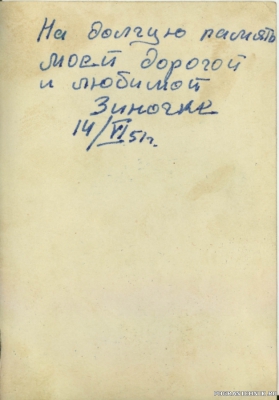 На долгую память
моей дорогой
и любимой
Зиночке
14/VI 51г.